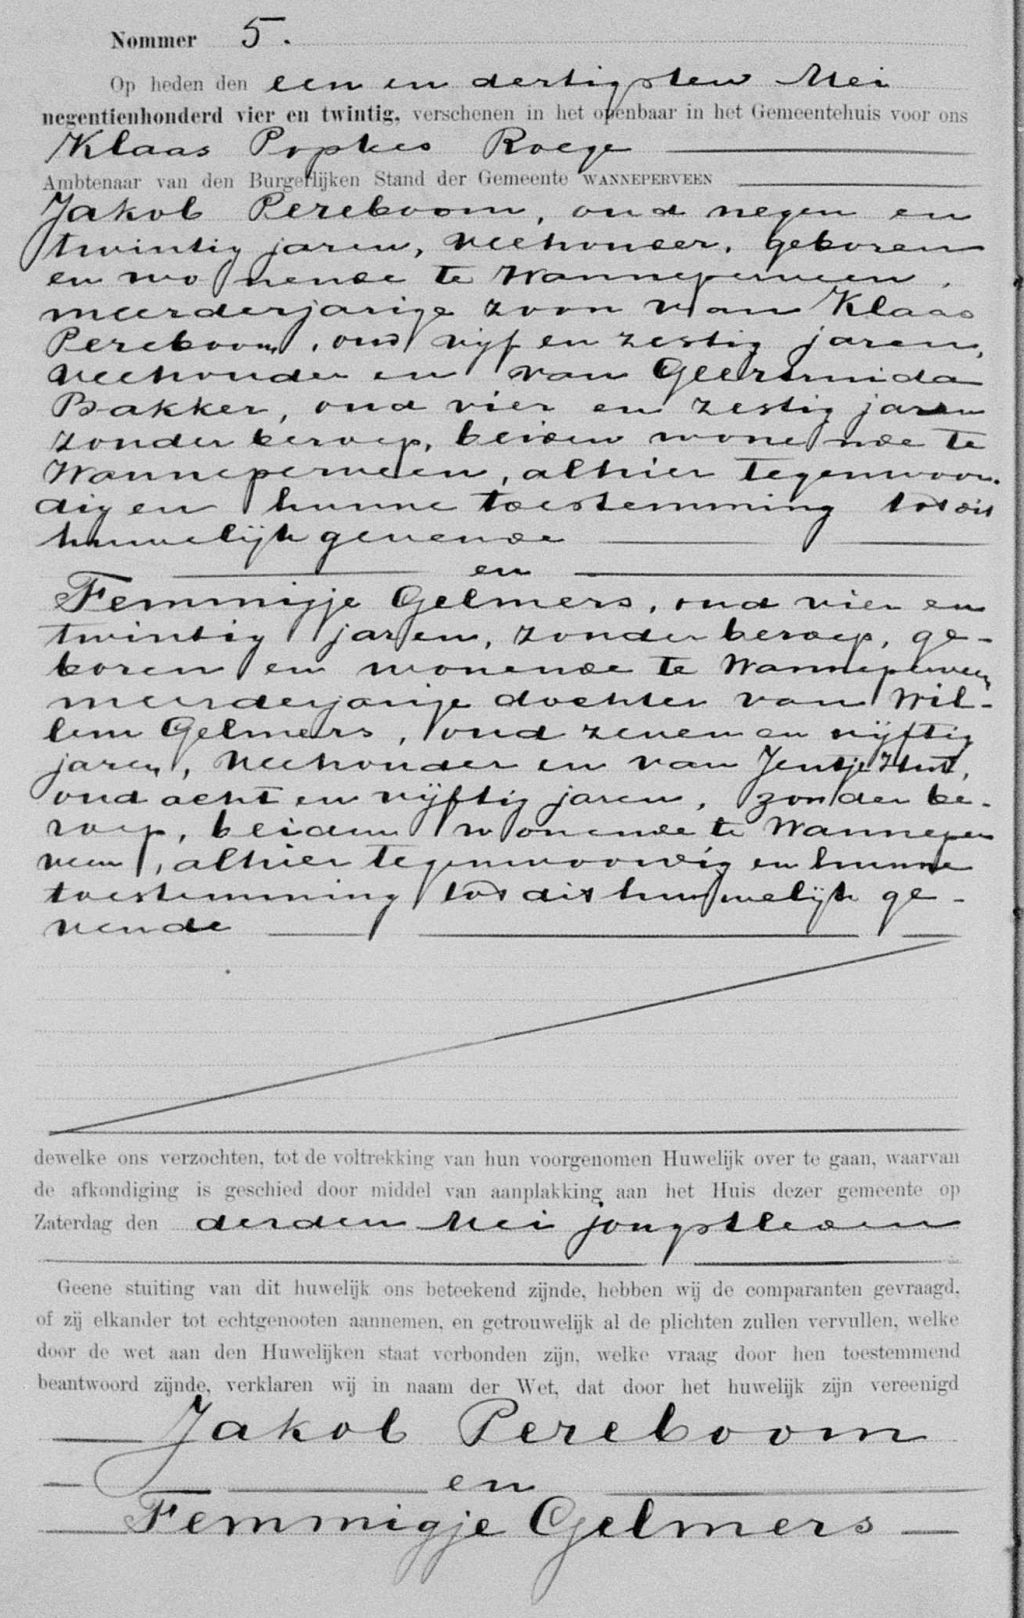 Nommer 5.
Op heden den een en dertigsten Mei
negentienhonderd vier en twintig, verschenen in het openbaar in het Gemeentehuis voor ons
Klaas Popkes Roege
Ambtenaar van den Burgerlijken Stand der Gemeente WANNEPERVEEN
Jakob Pereboom, oud negen en
twintig jaren, veehouder, geboren
en wonende te Wanneperveen,
meerderjarige zoon van Klaas
Pereboom, oud vijf en zestig jaren,
veehouder en van
Bakker, oud vier en zestig jaren
zonder beroep, beiden wonende te
Wanneperveen, alhier tegenwoor-
dig en hunne toestemming tot dit
huwelijk gevende
en
Femmigje Gelmers, oud vier en
twintig jaren, zonder beroep, ge-
boren en wonende te Wanneperveen
meerderjarige dochter van Wil-
lem Gelmers, oud zeven en vijftig
jaren, veehouder en van Jentje
oud acht en vijftig jaren, zonder be-
roep, beiden wonende te Wanneper
veen, alhier tegenwoordig en hunne
toestemming tot dit huwelijk ge-
vende
dewelke ons verzochten, tot de voltrekking van hun voorgenomen Huwelijk over te gaan, waarvan
de afkondiging is geschied door middel van aanplakking aan het Huis dezer gemeente op
Zaterdag den derden Mei jongstleden
Geene stuiting van dit huwelijk ons beteekend zijnde, hebben wij de comparanten gevraagd,
of zij elkander tot echtgenooten aannemen, en getrouwelijk al de plichten zullen vervullen, welke
door de wet aan den Huwelijken staat verbonden zijn, welke vraag door hen toestemmend
beantwoord zijnde, verklaren wij in naam der Wet, dat door het huwelijk zijn vereenigd
Jakob Pereboom
en
Femmigje Gelmers